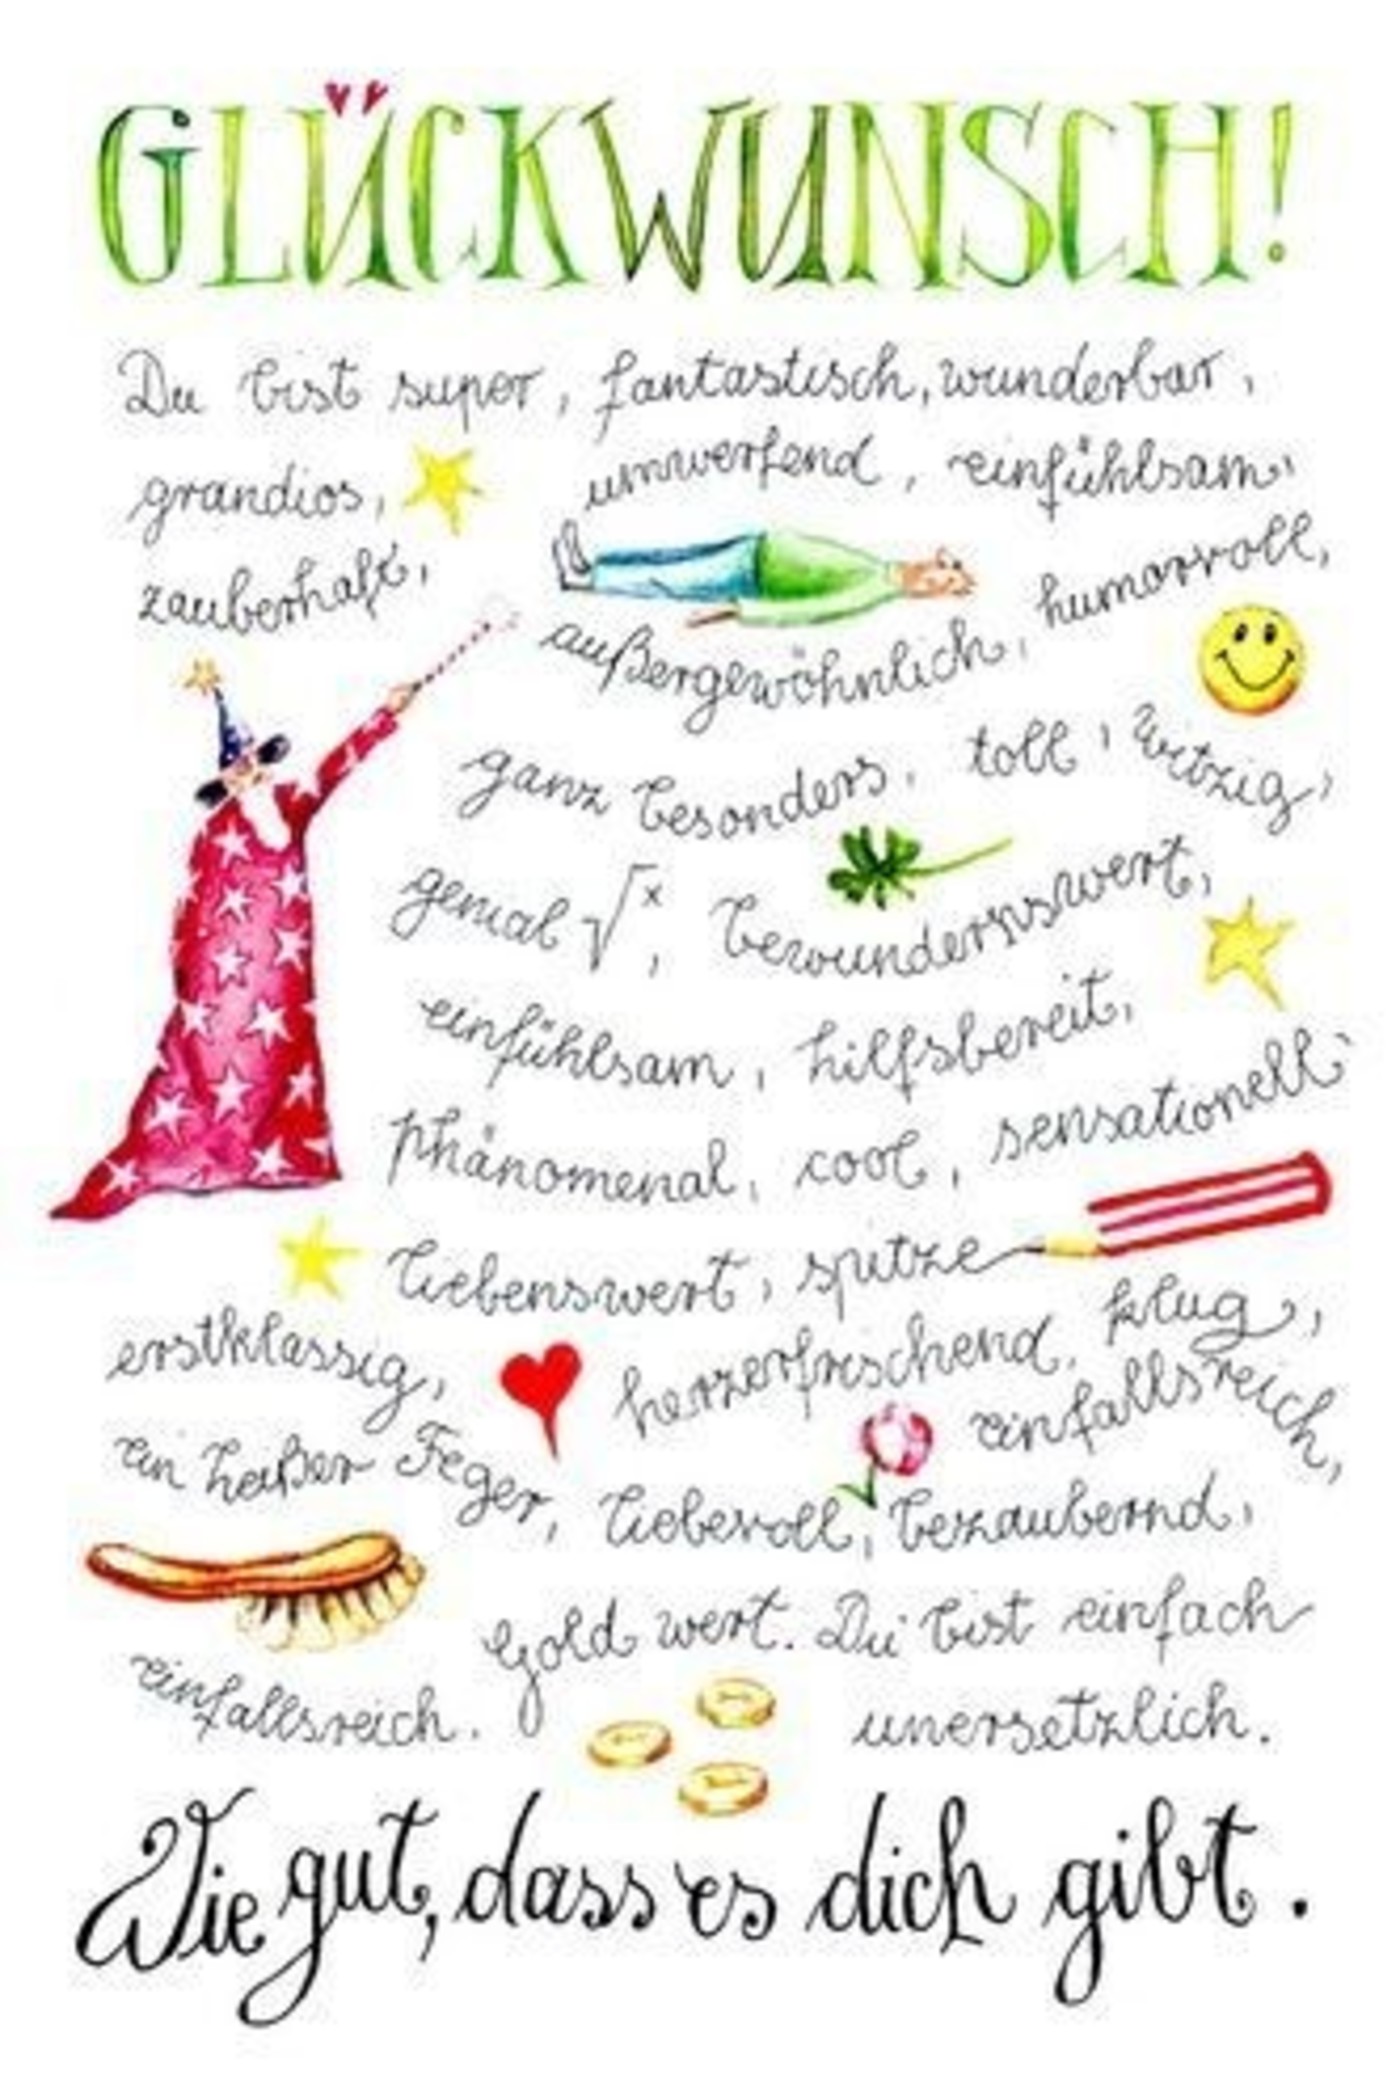 GLÜCKWUNSCH!
Du bist super, fantastisch, wunderbar,
grandios, umwerfend, einfühlsam,
zauberhaft,
außergewöhnlich, humorvoll,
ganz besonders, toll, witzig,
genial √x, bewundernswert,
einfühlsam, hilfsbereit,
phänomenal, cool, sensationell,
liebenswert, spitze
erstklassig, herzerfrischend, klug,
ein heißer Feger, liebevoll, bezaubernd, einfallsreich,
einfallsreich. Gold wert. Du bist einfach
unersetzlich.
Wie gut, dass es dich gibt.